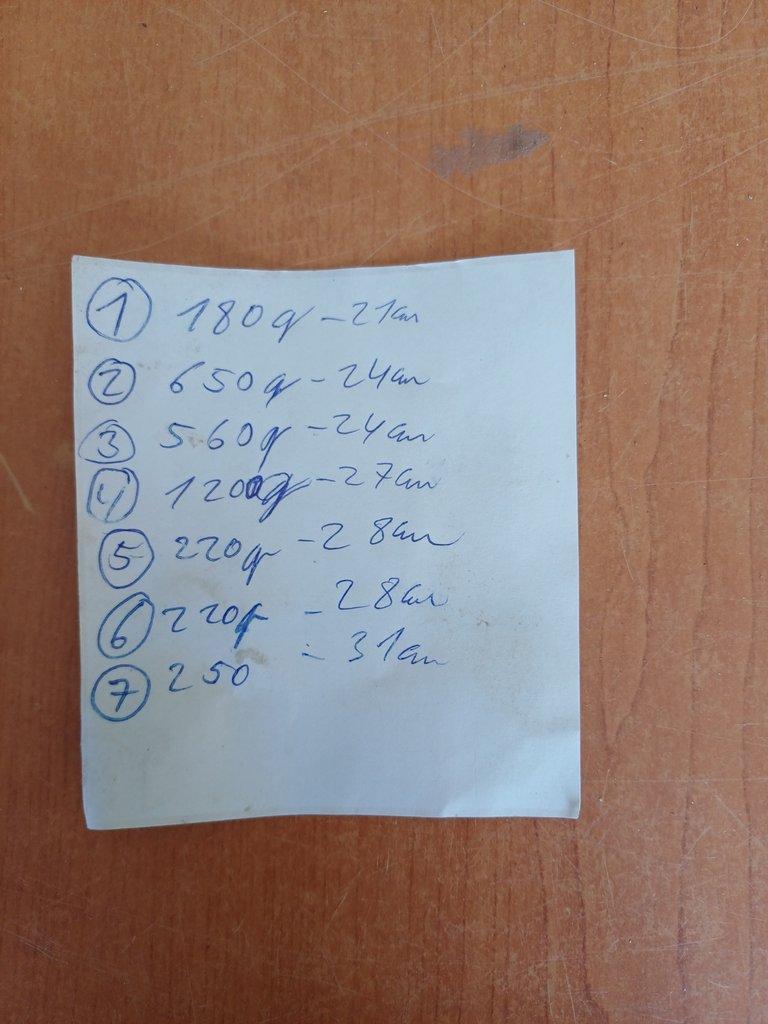 1 180g - 21cm
2 650g - 24cm
3 560g - 24cm
4 1200g - 27cm
5 220g - 28cm
6 220g - 28cm
7 250 - 31cm